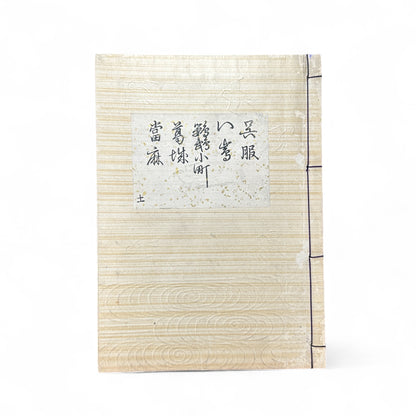 呉服
八嶌
鸚鵡小町
葛城
當麻
土